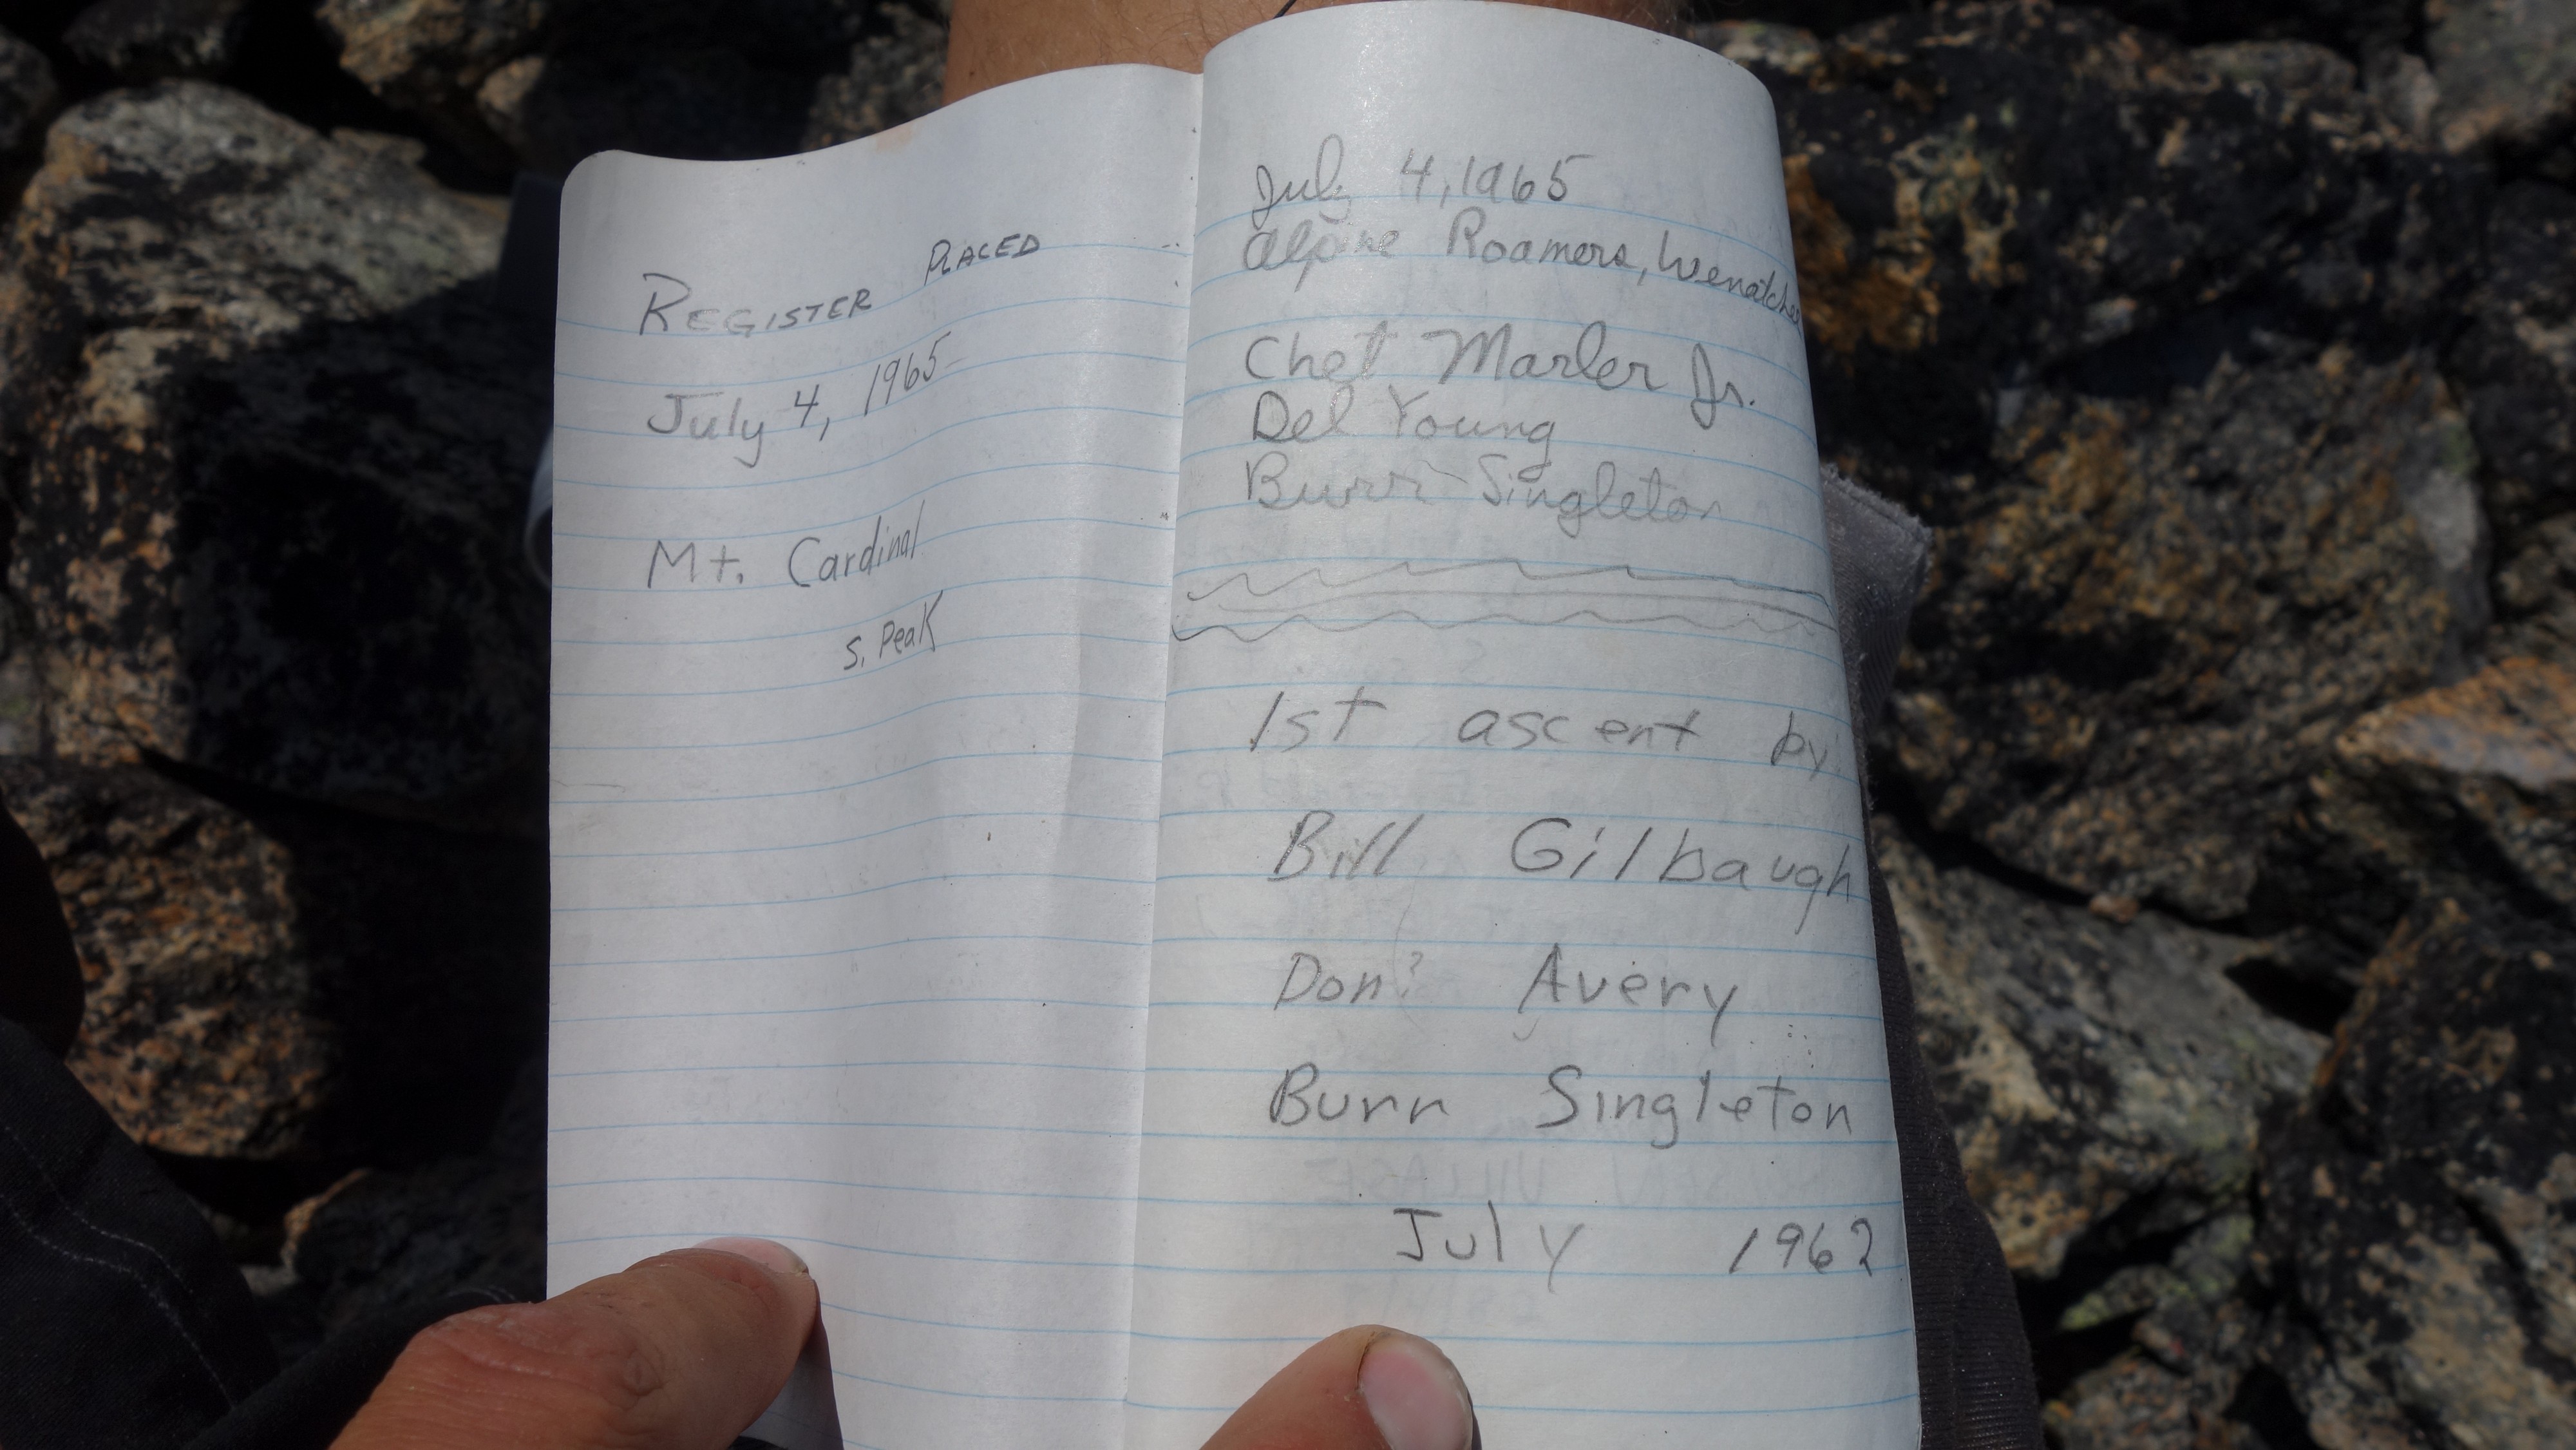 REGISTER PLACED
July 4, 1965
Mt. Cardinal
S. Peak
July 4, 1965
Alpine Roamers, Wenatchee
Chet Marler Jr.
Del Young
Burr Singleton
1st ascent by
Bill Gilbaugh
Don? Avery
Burr Singleton
July 1962